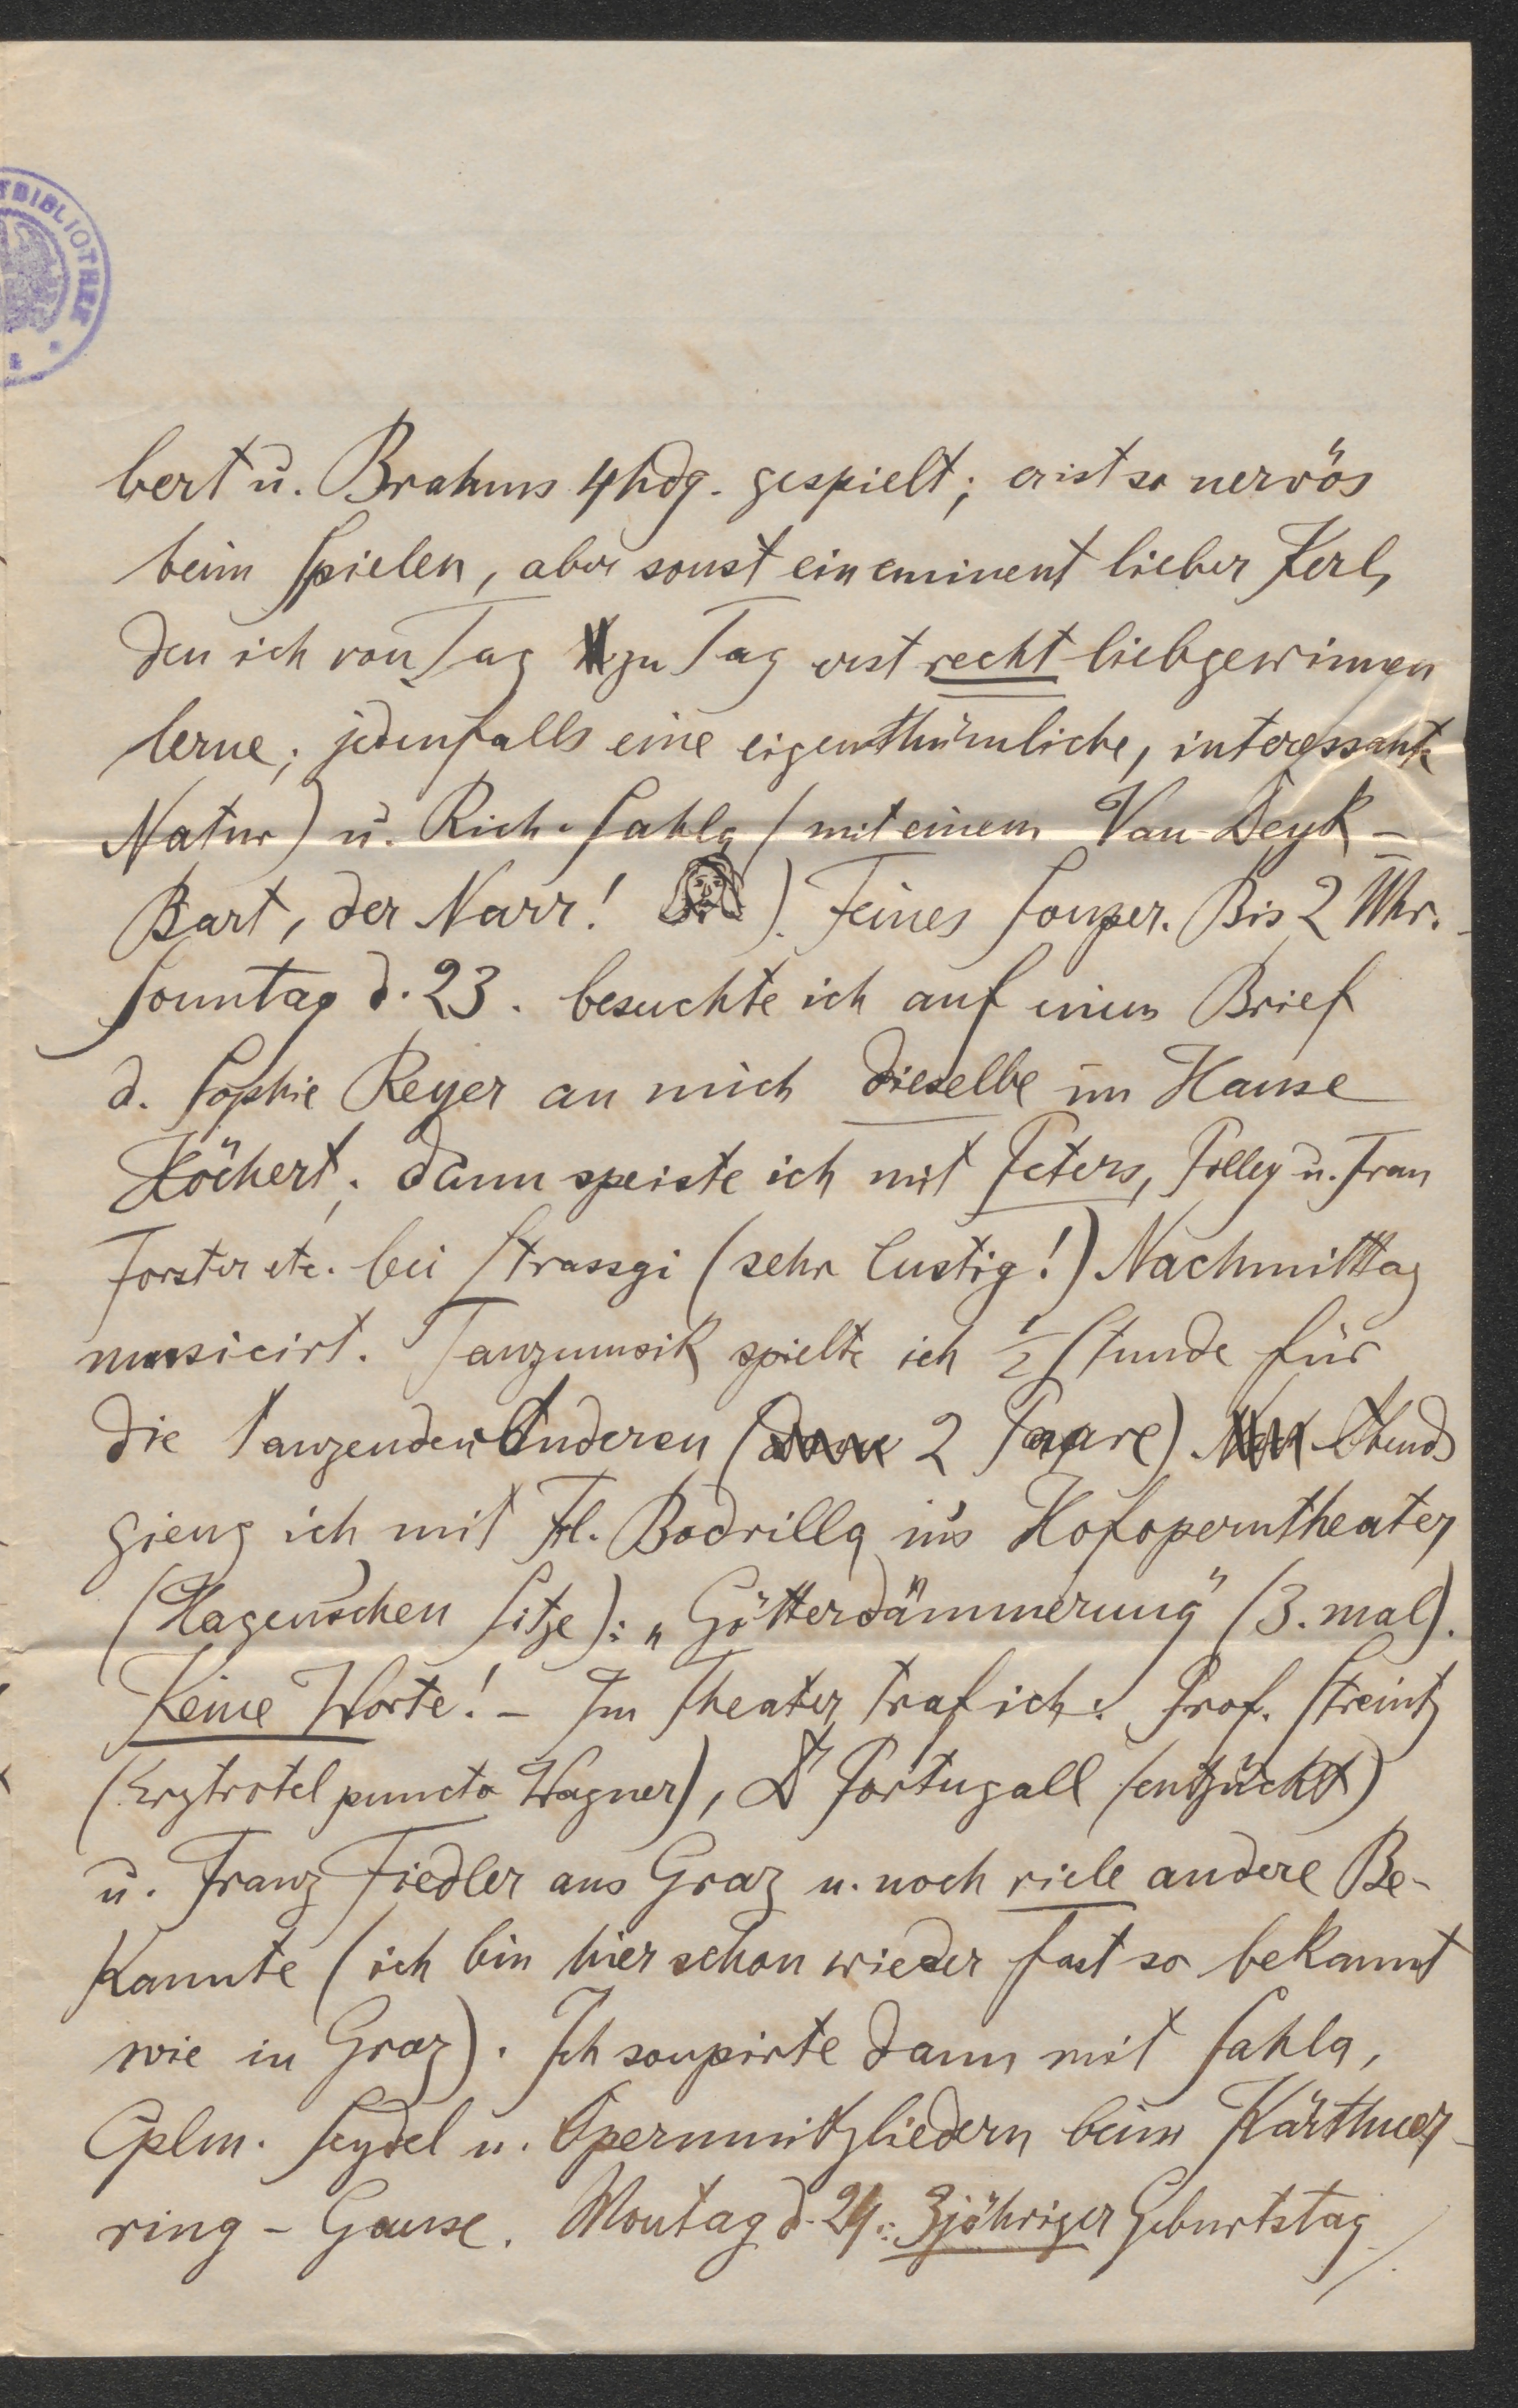 TBIBLIOTHEK
bert u. Brahms 4hdg. gespielt; er ist so nervös
beim Spielen, aber sonst ein eminent lieber Kerl,
den ich von Tag zu Tag erst recht liebgewinnen
lerne; jedenfalls eine eigenthümliche, interessante
Natur) u. Rich. Sahla (mit einem Van-Deyk-
Bart, der Narr! ). Feines Souper. Bis 2 Uhr. -
Sonntag d. 23. besuchte ich auf einen Brief
d. Sophie Reyer an mich dieselbe im Hause
Köchert; dann speiste ich mit Peters, Polley u. Frau
Forster etc. bei Strassgi (sehr lustig!) Nachmittag
musicirt. Tanzmusik spielte ich ½ Stunde für
die tanzenden Anderen (2 Paare). Abends
gieng ich mit Frl. Bodrilla in's Hofoperntheater
(Hagen'schen Sitze): „Götterdämmerung" (3. mal).
Keine Worte! - Im Theater traf ich: Prof. Streintz
(Erztrotel puncto Wagner), Dr Portugall (entzückt)
u. Franz Fiedler aus Graz u. noch viele andere Be-
kannte (ich bin hier schon wieder fast so bekannt
wie in Graz). Ich soupirte dann mit Sahla,
Cplm. Seydel u. Opernmitgliedern beim Kärthner-
ring-Gause. Montag d. 24.: 3jähriger Geburtstag